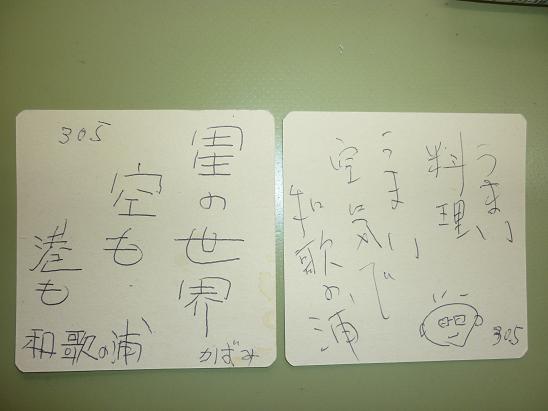 305
星の世界
空も
港も
和歌の浦
かずみ
うまい
料理、
うまい
空気で
和歌の浦
305